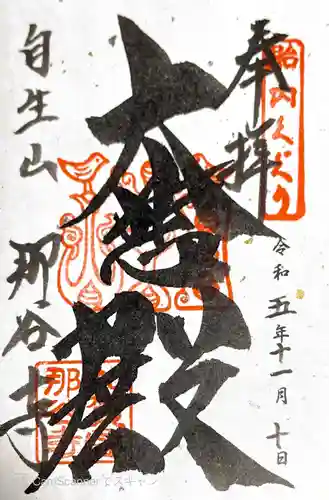 奉拝
胎内くぐり
令和五年十一月十日
大悲殿
自生山
那谷寺
CamScannerでスキャン